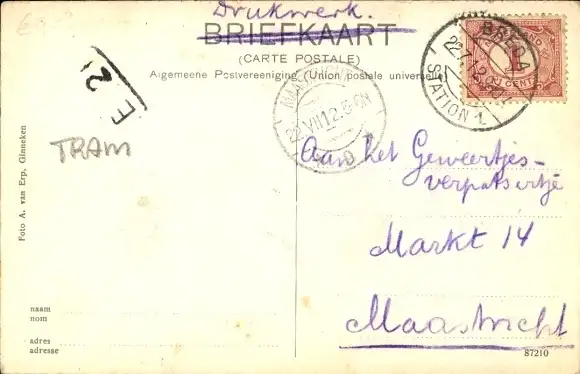 Drukwerk.
BRIEFKAART
(CARTE POSTALE)
Algemeene Postvereeniging (Union postale universelle)
BREDA
STATION 1
1
CENT
VIII 12. 5-6N
2
E
TRAM
Aan Het Geweertjes-
verpatsertje
Markt 14
Maastricht
Foto A. van Erp, Ginneken
naam
nom
adres
adresse
87210